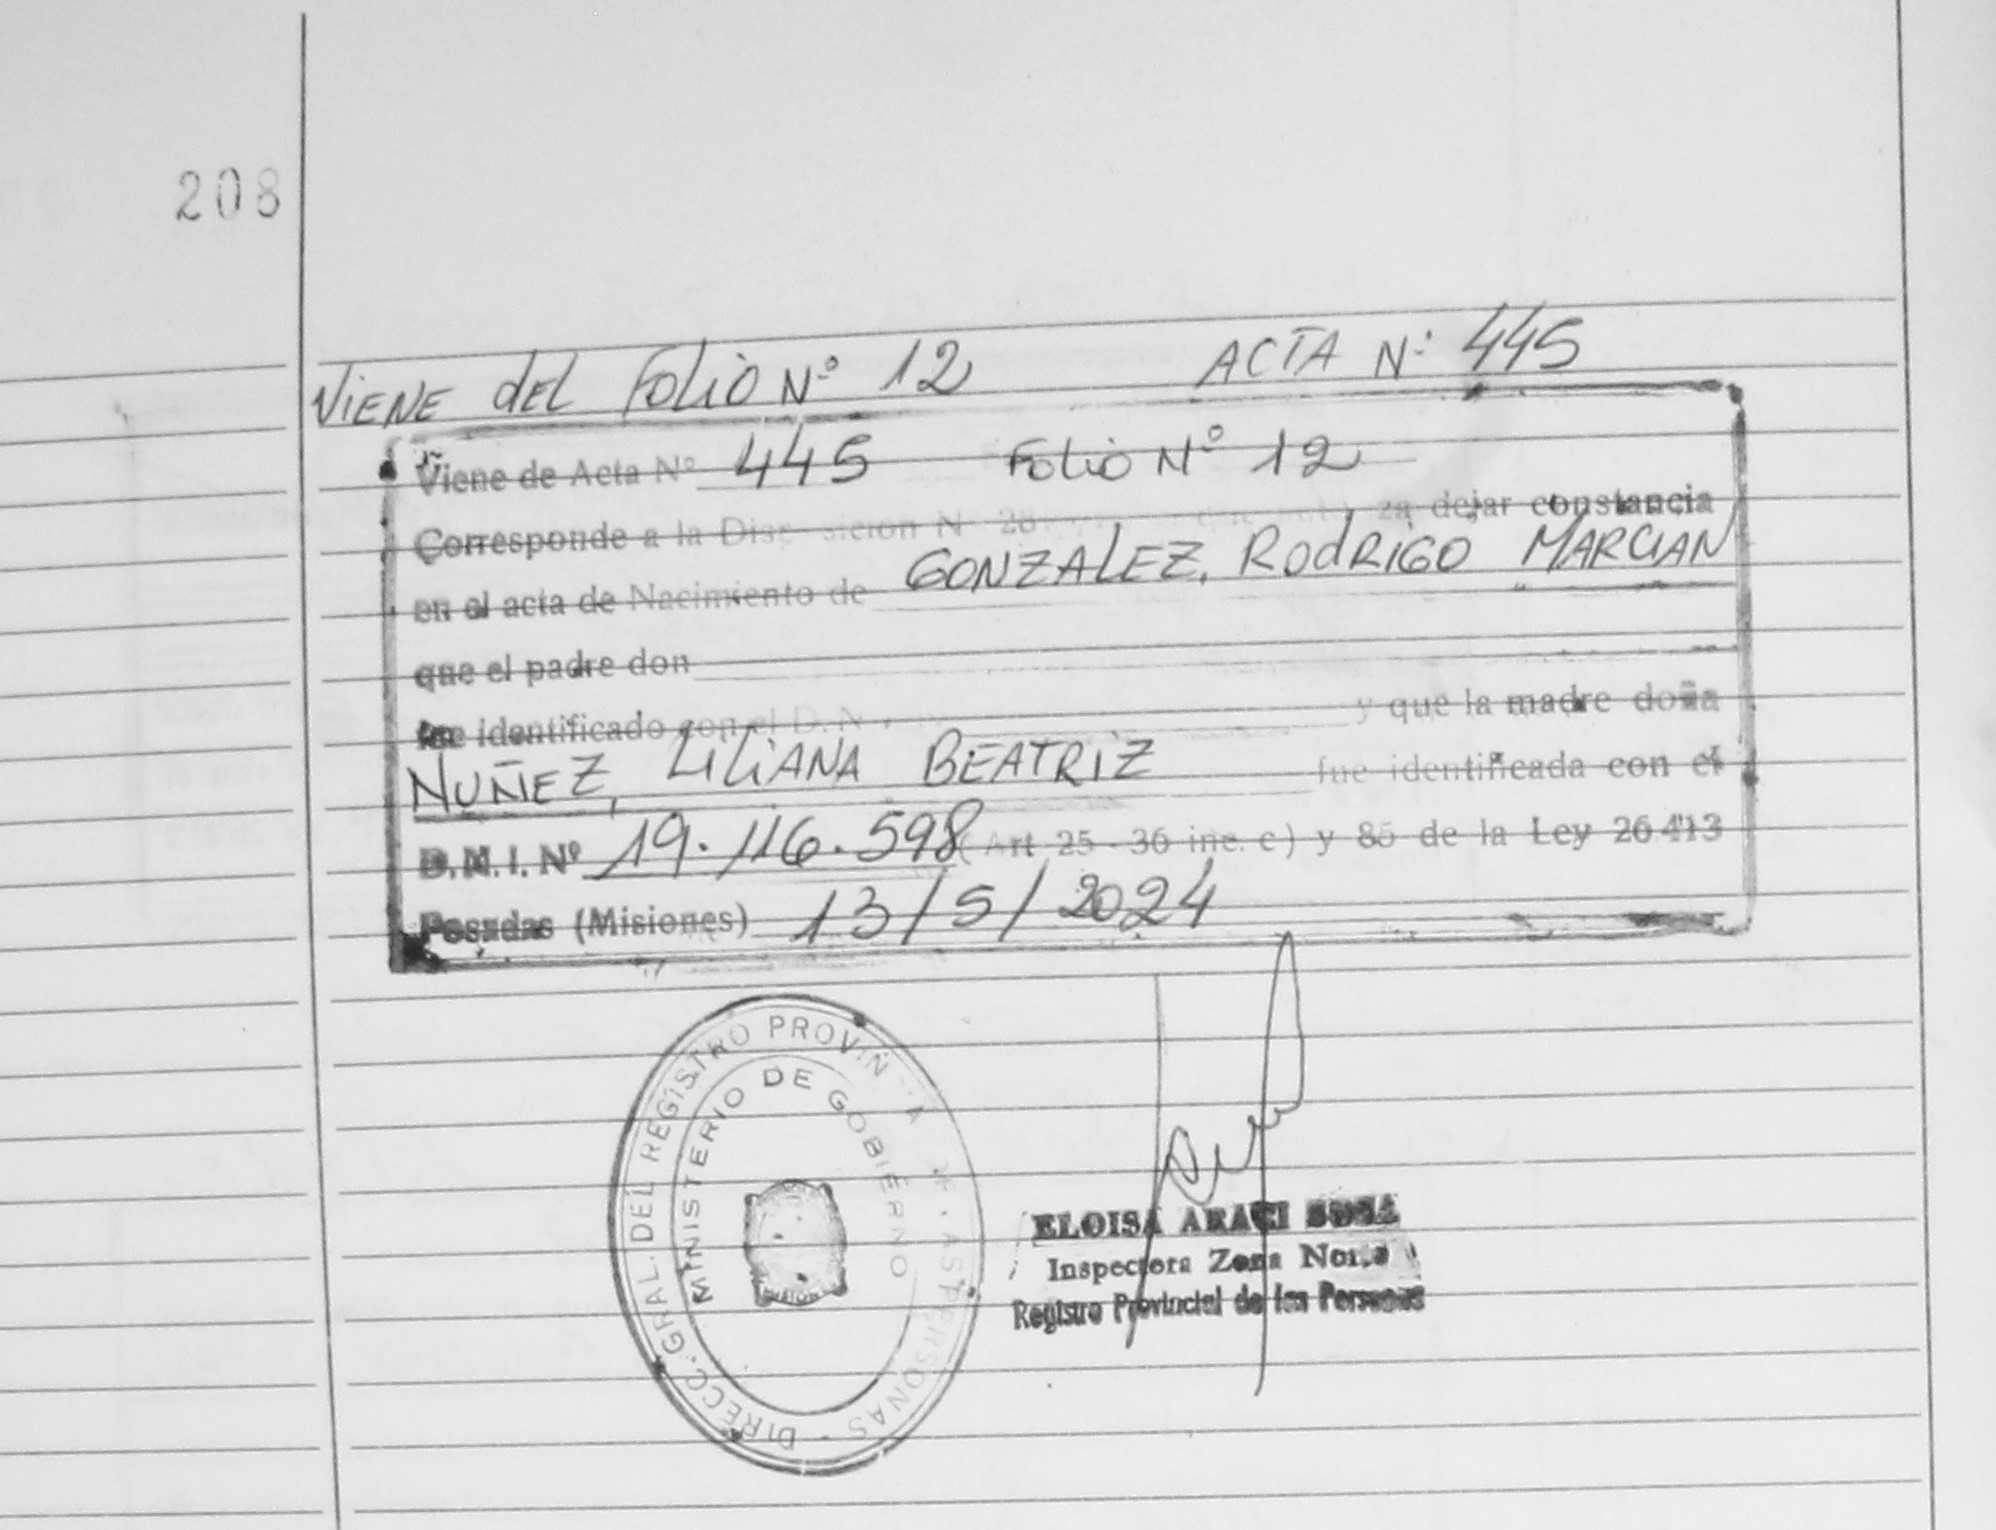 208
VIENE DEL FOLIO Nº 12 ACTA Nº 445
Viene de Acta Nº 445 FOLIO Nº 12
Corresponde a la Dis sicion N 28 dejar constancia
en el acta de Nacimiento de GONZALEZ, RODRIGO MARCIAN
que el padre don
fue identificado con el D.N y que la madre doña
NUÑEZ, LILIANA BEATRIZ fue identificada con el
D.N.I. Nº 19.116.598 (Art 25 - 36 inc. c) y 85 de la Ley 26.413
Posadas (Misiones) 13/5/2024
DIRECC. GRAL. DEL REGISTRO PROVIN A AS PERSONAS
MINISTERIO DE GOBIERNO
ELOISA ARACI SOSA
Inspectora Zona Norte
Registro Provincial de las Personas